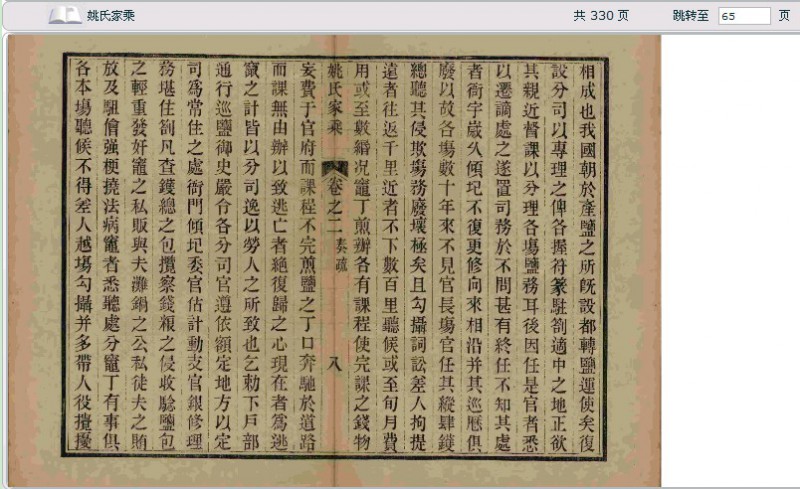 姚氏家乘
共 330 页
跳转至 65 页
相成也我國朝於產鹽之所旣設都轉鹽運使矣復
設分司以專理之俾各握符篆駐劄適中之地正欲
其親近督課以分理各塲鹽務耳後因任是官者悉
以遷謫處之遂置司務於不問甚有終任不知其處
者衙宇歲久傾圮不復更修向來相沿并其巡歷俱
廢以故各塲數十年來不見官長塲官任其縱肆錢
總聽其侵欺塲務廢壞極矣且勾攝詞訟差人拘提
遠者往返千里近者不下數百里聽候或至旬月費
用或至數緡况竈丁煎辦各有課程使完課之錢物
姚氏家乘 卷之二 奏疏 八
妄費于官府而課程不完煎鹽之丁口奔馳於道路
而課無由辦以致逃亡者絕復歸之心現在者爲逃
竄之計皆以分司逸以勞人之所致也乞勅下戶部
通行巡鹽御史嚴令各分司官遵依額定地方以定
司爲常住之處衙門傾圮委官估計動支官銀修理
務堪住劄凡查鑊總之包攬察錢糧之侵收騐鹽包
之輕重發奸竈之私販與夫灘鍋之公私徒夫之賄
放及駔儈强梗撓法病竈者悉聽處分竈丁有事俱
各本塲聽候不得差人越塲勾攝并多帶人役攪擾